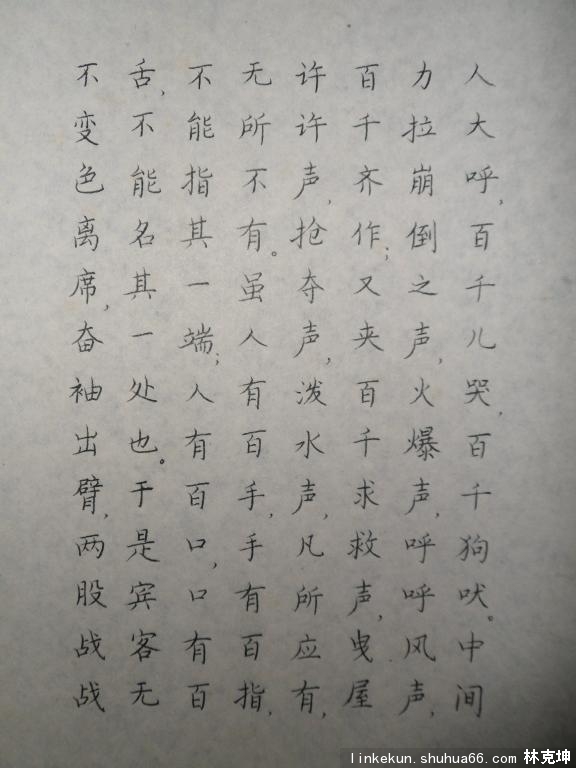 人大呼，百千儿哭，百千狗吠。中间
力拉崩倒之声，火爆声，呼呼风声，
百千齐作；又夹百千求救声，曳屋
许许声，抢夺声，泼水声，凡所应有，
无所不有。虽人有百手，手有百指，
不能指其一端；人有百口，口有百
舌，不能名其一处也。于是宾客无
不变色离席，奋袖出臂，两股战战
linkekun.shuhua66.com 林克坤